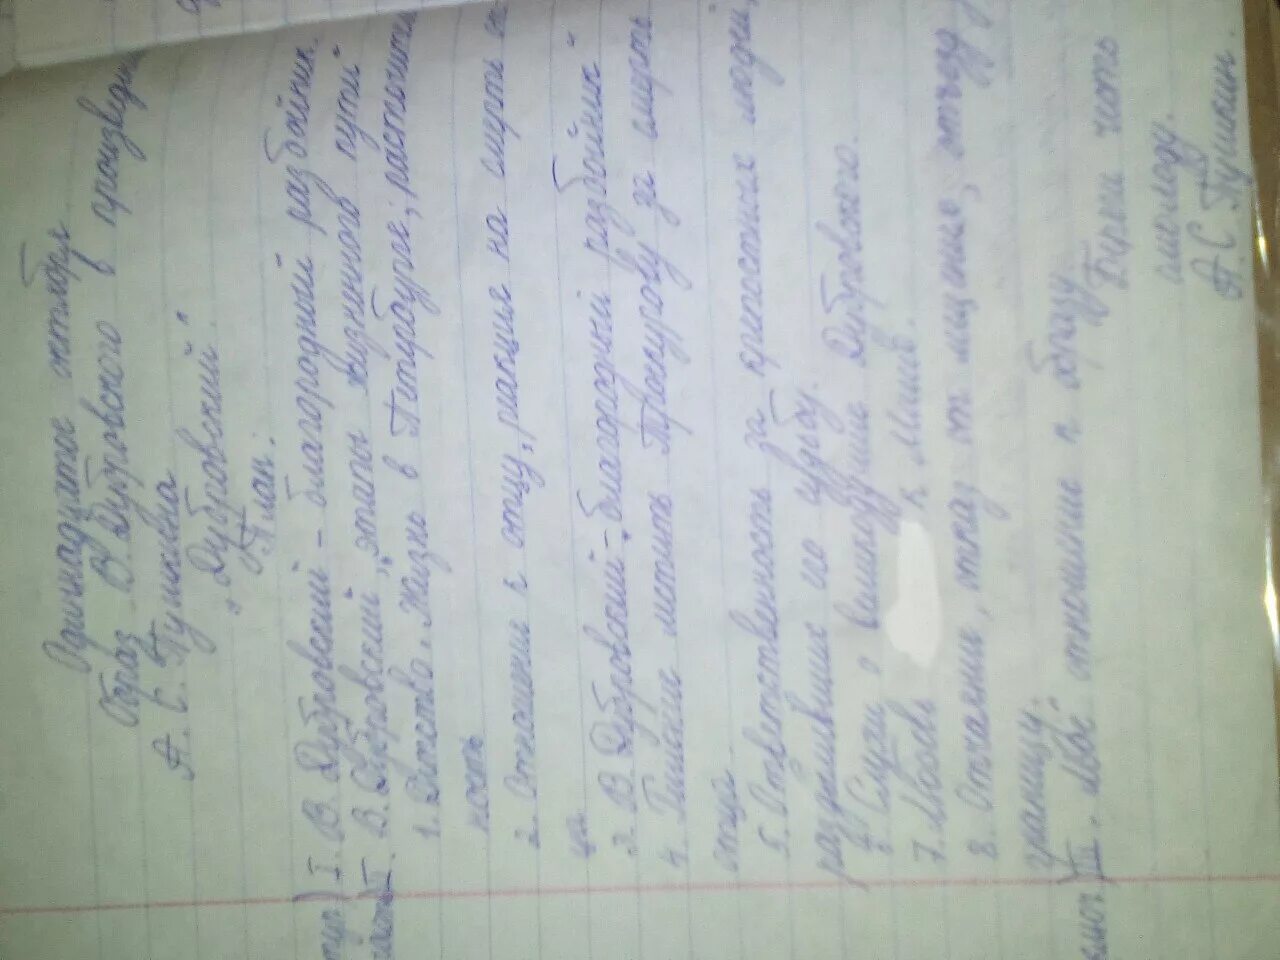 Одиннадцатое октября
Образ В. Дубровского в произведен
А. С. Пушкина
„Дубровский".
План:
вступ) I. В. Дубровский – благородный разбойник.
II. В. Дубровский, этапы жизненного пути"
1. Детство. Жизнь в Петербурге, расточитель
ность
2. Отношение к отцу, реакция на смерть от
ца.
3. В Дубровский – благородный разбойник"
4. Решение мстить Троекурову за смерть
отца
5. Ответственность за крепостных людей,
разделивших его судьбу.
6. Слухи о великодушие Дубровского.
7. Любовь к Маше.
8. Отчаяние, отказ от мщение, отъезд
границу.
III. Моё отношение к образу
Береги честь
смолоду.
А. С. Пушкин.